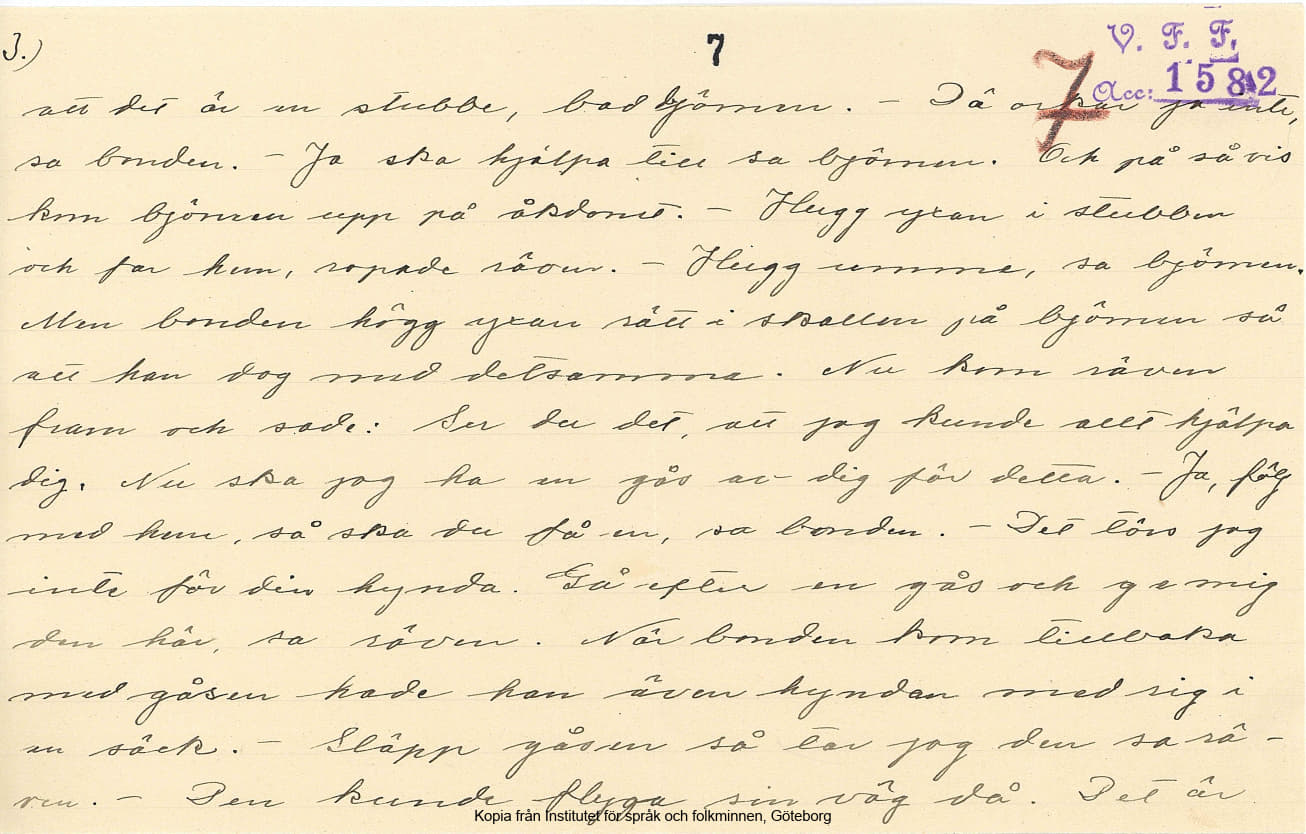 3.)
7
V. F. F.
7
Acc: 1582
att det är en stubbe, bad björnen. – Dä orkar ja inte,
sa bonden. – Ja ska hjälpa till sa björnen. Och på så vis
kom björnen upp på åkdonet. – Hugg yxan i stubben
och far hem, ropade räven. – Hugg umme, sa björnen.
Men bonden högg yxan rätt i skallen på björnen så
att han dog med detsamma. Nu kom räven
fram och sade: Ser du det, att jag kunde allt hjälpa
dig. Nu ska jag ha en gås av dig för detta. – Ja, följ
med hem, så ska du få en, sa bonden. – Det törs jag
inte för din hynda. Gå efter en gås och ge mig
den här, sa räven. När bonden kom tillbaka
med gåsen hade han även hyndan med sig i
en säck. – Släpp gåsen så tar jag den sa rä-
ven. – Den kunde flyga sin väg då. Det är
Kopia från Institutet för språk och folkminnen, Göteborg